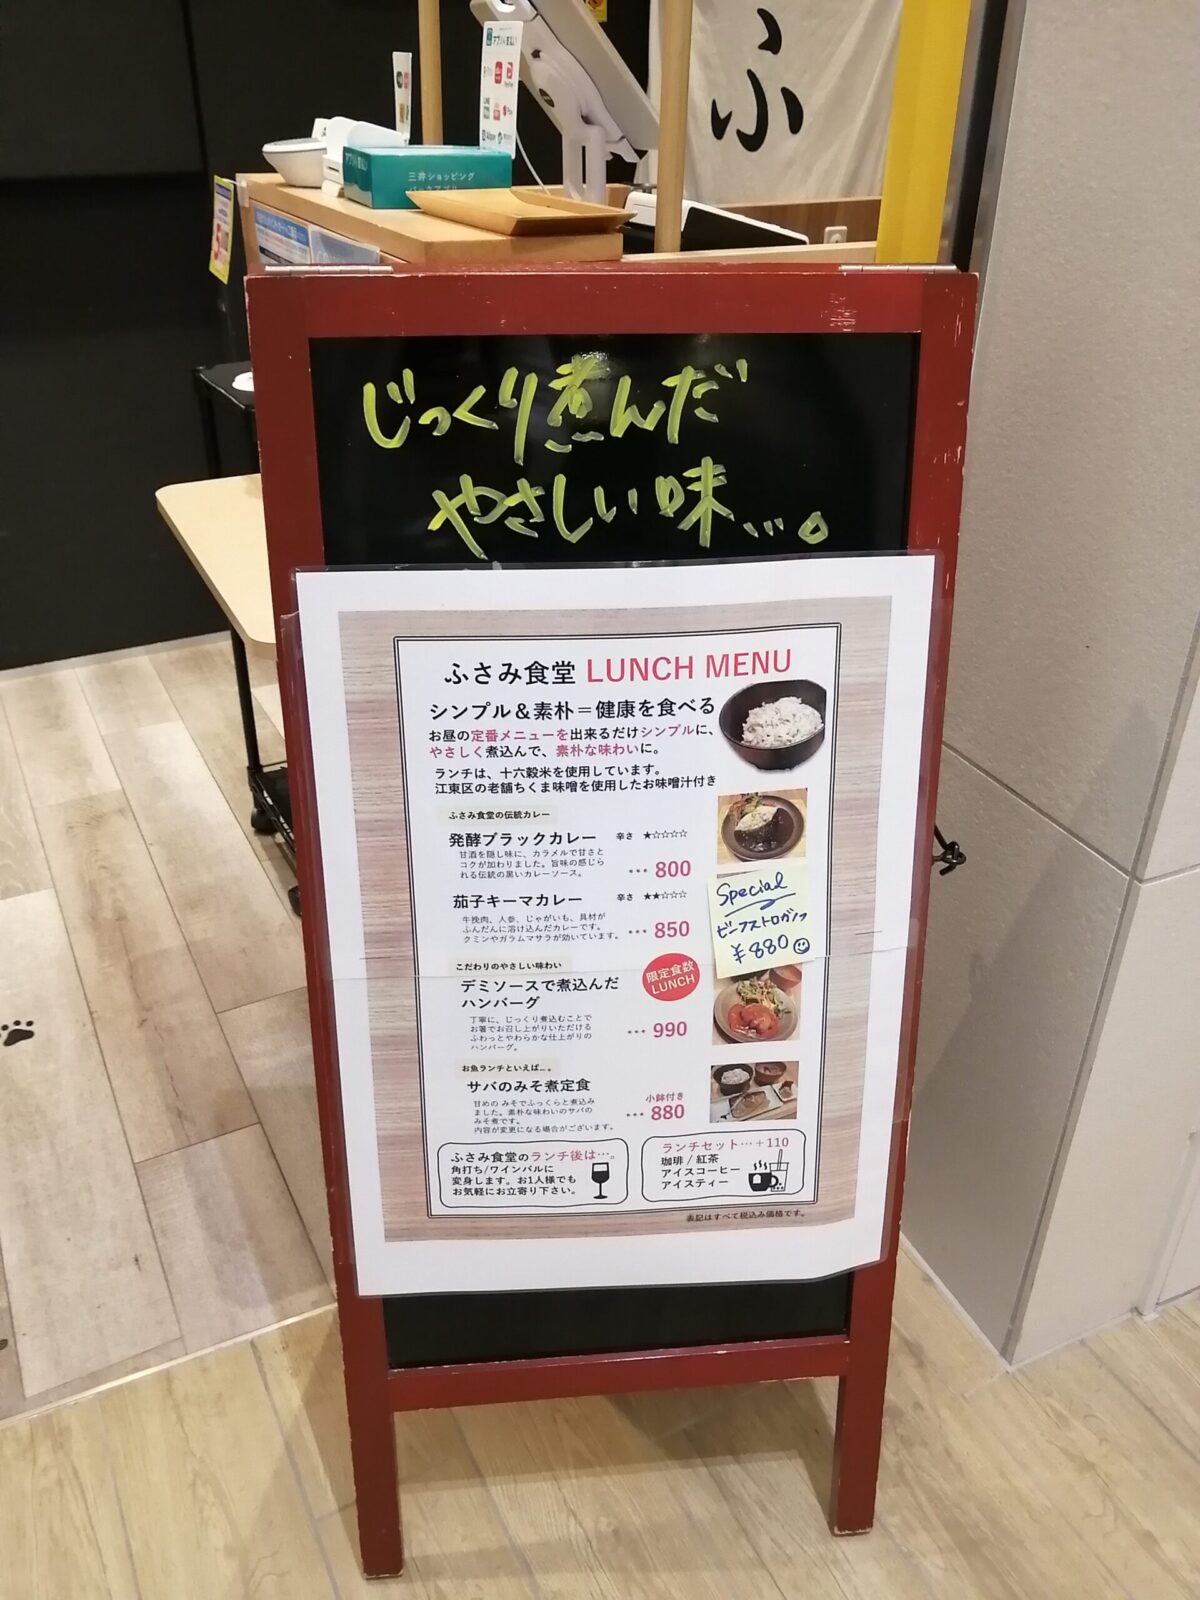 ふ
アプリ支払い
三井ショッピング
パークアプリ
じっくり煮んだ
やさしい味…。
ふさみ食堂 LUNCH MENU
シンプル＆素朴＝健康を食べる
お昼の定番メニューを出来るだけシンプルに、
やさしく煮込んで、素朴な味わいに。
ランチは、十六穀米を使用しています。
江東区の老舗ちくま味噌を使用したお味噌汁付き
ふさみ食堂の伝統カレー
発酵ブラックカレー 辛さ ★☆☆☆☆
甘酒を隠し味に、カラメルで甘さと
コクが加わりました。旨味の感じら
れる伝統の黒いカレーソース。
… 800
茄子キーマカレー 辛さ ★★☆☆☆
牛挽肉、人参、じゃがいも、具材が
ふんだんに溶け込んだカレーです。
クミンやガラムマサラが効いています。
… 850
Special
ビーフストロガノフ
¥880
こだわりのやさしい味わい
限定食数
LUNCH
デミソースで煮込んだ
ハンバーグ
丁寧に、じっくり煮込むことで
お箸でお召し上がりいただける
ふわっとやわらかな仕上がりの
ハンバーグ。
… 990
お魚ランチといえば…。
サバのみそ煮定食
甘めの みそでふっくらと煮込み
ました。素朴な味わいのサバの
みそ煮です。
内容が変更になる場合がございます。
小鉢付き
… 880
ふさみ食堂のランチ後は…。
角打ち/ワインバルに
変身します。お1人様でも
お気軽にお立寄り下さい。
ランチセット…＋110
珈琲 / 紅茶
アイスコーヒー
アイスティー
表記はすべて税込み価格です。